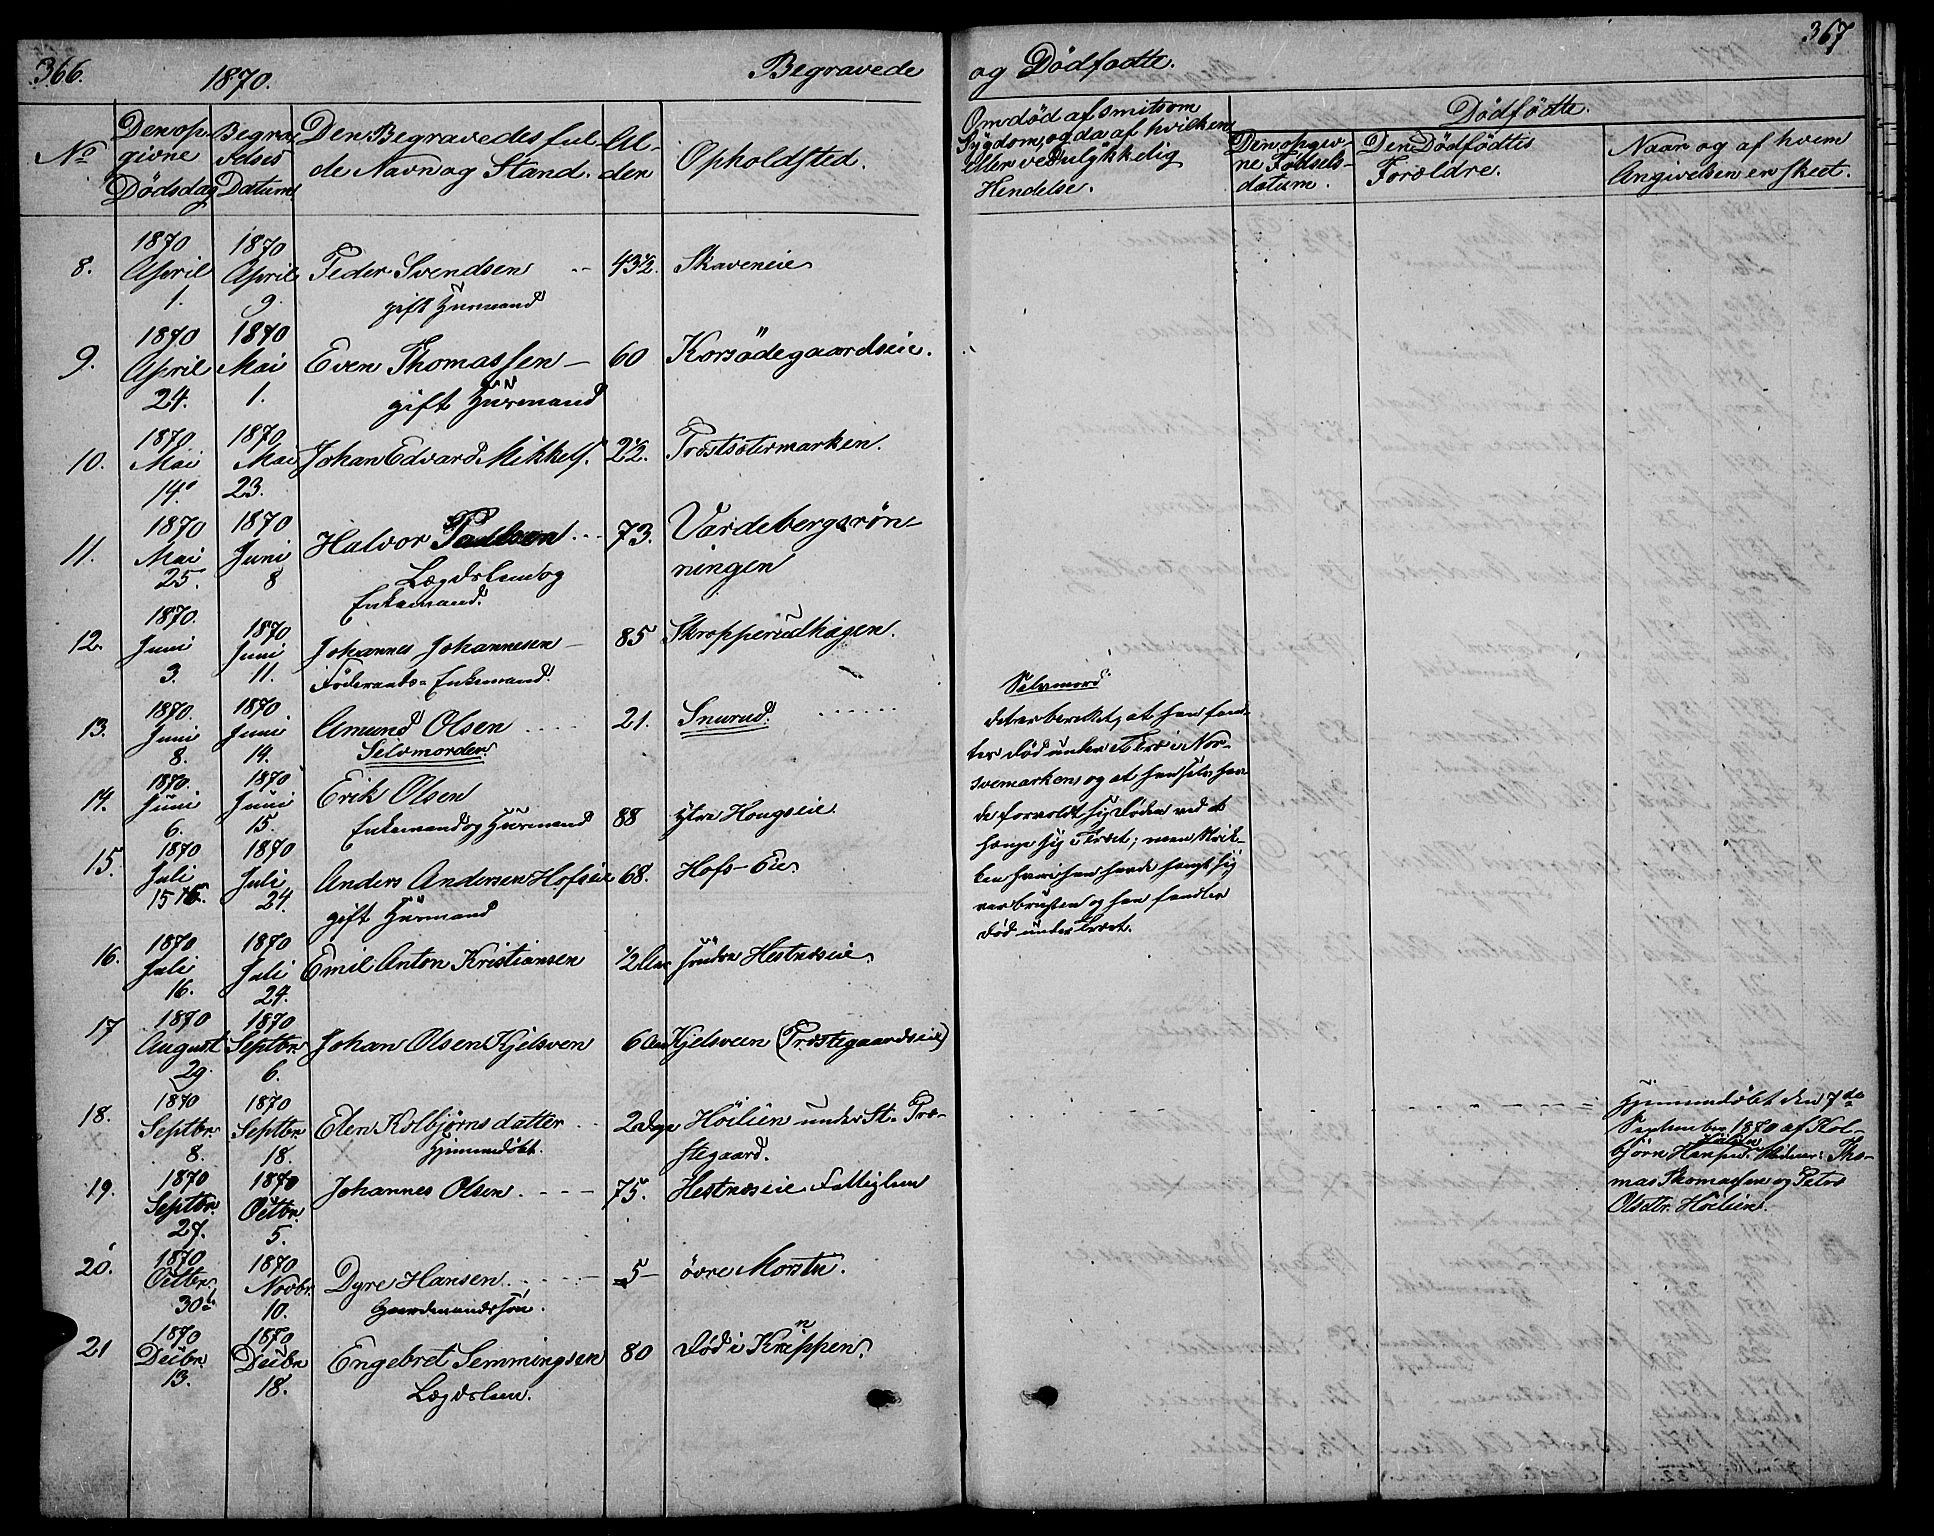 366.
1870.
Begravede
og Dødfødte.
367
No
Den op-
givne
Dødsdag
Begra-
velses
Datum
Den Begravedes ful-
de Navn og Stand.
Al-
der
Opholdsted.
Om død af smitsom
Sygdom, og da af hvilken,
eller ved ulykkelig
Hendelse.
Dødfødte.
Den opgiv-
ne Fødsels-
datum.
Den Dødfødtes
Forældre.
Naar og af hvem
Angivelsen er skeet.
8.
1870
April
1.
1870
April
9.
Peder Svendsen
gift Huusmand
43½.
Skaveneie
9.
1870
April
24.
1870
Mai
1.
Even Thomassen
gift Huusmand
60
Korsødegaardseie.
10.
1870
Mai
14.
1870
Mai
23.
Johan Edvard Mikkels.
2½.
Prostsætermarken.
11.
1870
Mai
25.
1870
Juni
8
Halvor Paulsen
Lægdslem og
Enkemand.
73.
Vardebergsrøn-
ningen
12.
1870.
Juni
3.
1870
Juni
11.
Johannes Johannesen
Føderaads-Enkemand.
85
Skropperudhagen.
13.
1870.
Juni
8.
1870.
Juni
14.
Amund Olsen
Selvmorder
21.
Snurud.
Selvmord
det er beretet, at han fand-
tes død under et Træ i Nor-
svemarken, og at han selv hav-
de forvoldt sig Døden ved at
hænge sig i Træet; men Strik-
ken hvori han havde hængt sig
var brusten og han fandtes
død under Træet.
14.
1870.
Juni
6.
1870
Juni
15.
Erik Olsen
Enkemand og Huusmand
88
ytre Hougseie.
15.
1870
Juli
15
1870
Juli
24.
Anders Andersen Hofseie
gift Huusmand
68.
Hofs-Eie
16.
1870
Juli
16.
1870
Juli
24.
Emil Anton Kristiansen
½ Aar
søndre Hestnæseie.
17
1870
August
29.
1870
Septbr.
6.
Johan Olsen Kjelsven
6 Aar
Kjelsveen (Præstegaardseie)
18.
1870
Septbr.
8.
1870
Septbr.
18.
Elen Kolbjørnsdatter
Hjemmedøbt.
2 Dage
Høilien under St. Præ-
stegaard.
Hjemmedøbt den 7de
September 1870 af Kol-
bjørn Hansen Høilien. Vidner: Tho-
mas Thomassen og Petra
Olsdtr. Høilien.
19.
1870
Septbr.
27.
1870
Octbr.
5.
Johannes Olsen.
75.
Hestnæseie Fattiglem
20.
1870
Octbr.
30.
1870
Novbr.
10.
Dyre Hansen
Gaardmandssøn.
5
øvre Morstu.
21
1870
Decbr.
13.
1870
Decbr.
18.
Engebret Semmingsen
Lægdslem.
80
død i Krippen.